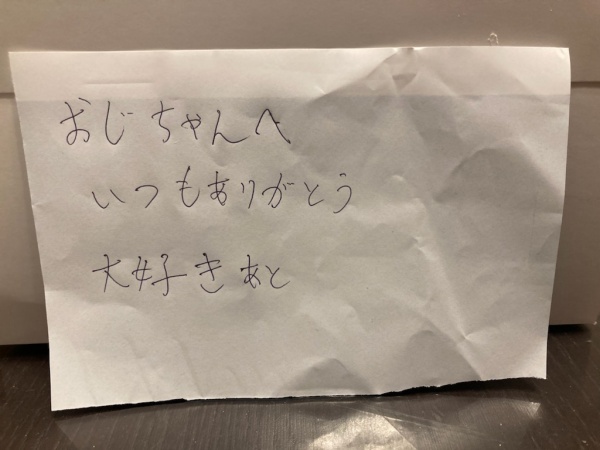 おじちゃんへ
いつもありがとう
大好きあと